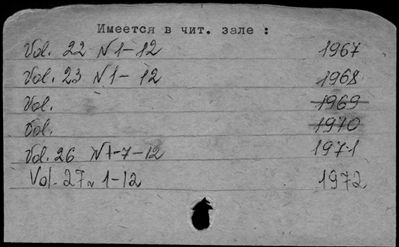 Имеется в чит. зале :
Vol. 22 N 1-12 1967
Vol. 23 N 1-12 1968
Vol. 1969
Vol. 1970
Vol. 26 N 1-7-12 1971
Vol. 27 N 1-12 1972